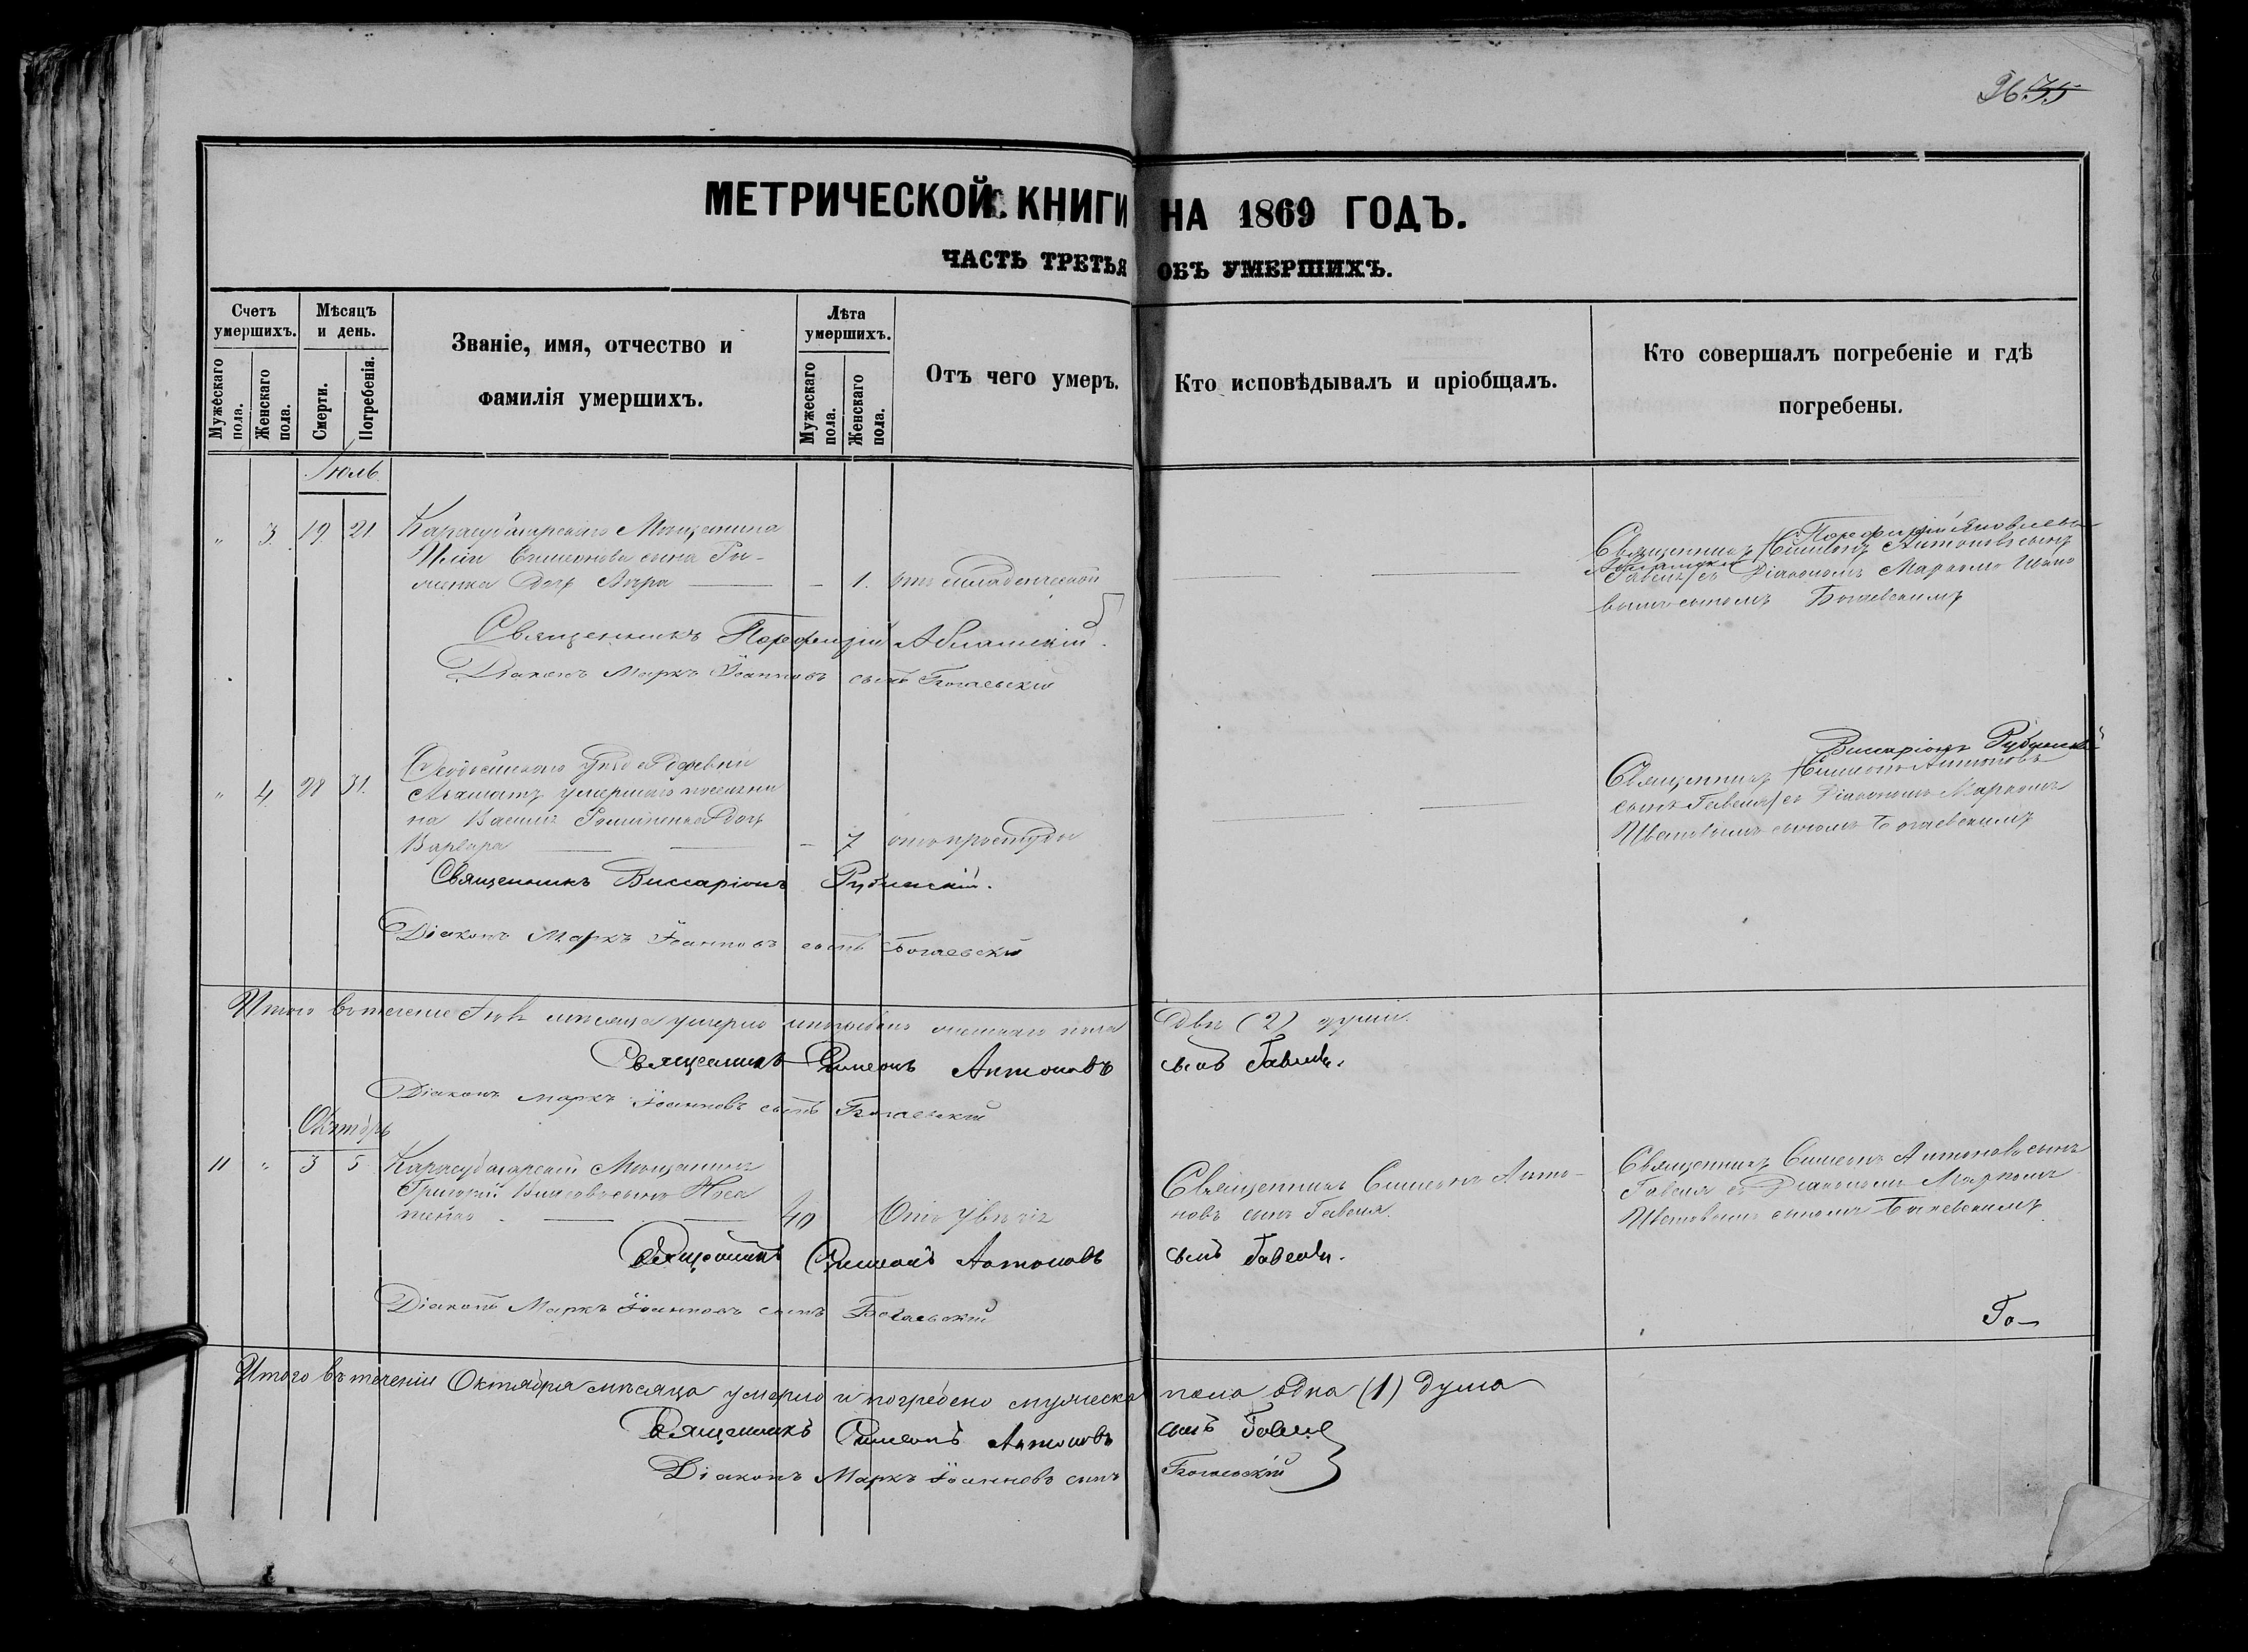 96. 35
МЕТРИЧЕСКОЙ КНИГИ НА 1869 ГОДЪ.
ЧАСТЬ ТРЕТЬЯ ОБЪ УМЕРШИХЪ.
Счетъ умершихъ.
Мужескаго пола.
Женскаго пола.
Мѣсяцъ и день.
Смерти.
Погребенія.
Званіе, имя, отчество и
фамилія умершихъ.
Лѣта умершихъ.
Мужескаго пола.
Женскаго пола.
Отъ чего умеръ.
Кто исповѣдывалъ и пріобщалъ.
Кто совершалъ погребеніе и гдѣ
погребены.
Іюль
„ 3. 19 21 Карасубазарскаго Мѣщанина
Симеонова сына
дочь — – 1. отъ младенческой
Порфирій Яковлевъ
Священникъ Симеонъ Антоновъ сынъ
Гавеля съ Діакономъ Маркомъ Ивано
вымъ сыномъ Богаевскимъ
Священникъ Порфирій
Діаконъ Маркъ Іоанновъ сынъ Богаевскій
„ 4. 28 31. Феодосійскаго Уѣзда деревни
умершаго поселяни
на дочь
Варвара — — – 7 отъ простуды
Виссаріонъ
Священникъ Симеонъ Антоновъ
сынъ Гавеля съ Діакономъ Маркомъ
Ивановымъ сыномъ Богаевскимъ
Священникъ Виссаріонъ
Діаконъ Маркъ Іоанновъ сынъ Богаевскій
Итого въ теченіе Іюля мѣсяца умерло женскаго пола двѣ (2) души.
Священникъ Симеонъ Антоновъ сынъ Гавеля.
Діаконъ Маркъ Іоанновъ сынъ Богаевскій
Октябрь
11 „ 3 5 Карасубазарскій Мѣщанинъ
Григорій сынъ
— — 40
Священникъ Симеонъ Анто-
новъ сынъ Гавеля.
Священникъ Симеонъ Антоновъ сынъ
Гавеля съ Діакономъ Маркомъ
Ивановымъ сыномъ Богаевскимъ
Священникъ Симеонъ Антоновъ сынъ Гавеля.
Діаконъ Маркъ Іоанновъ сынъ Богаевскій
Го—
Итого въ теченіи Октября мѣсяца умерло и погребено мужеска пола одна (1) душа
Священникъ Симеонъ Антоновъ сынъ Гавеля
Діаконъ Маркъ Іоанновъ сынъ Богаевскій